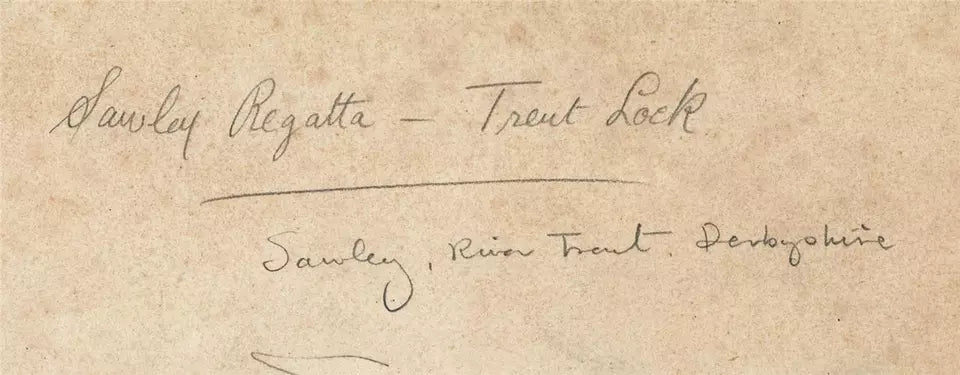 Sawley Regatta – Trent Lock
Sawley, River Trent. Derbyshire